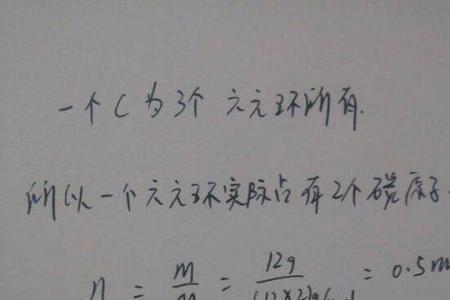 一个C为3个六元环所有.
所以一个六元环实际占有2个碳原子.
n = m/m = 12g/(12×2)g/mol = 0.5m